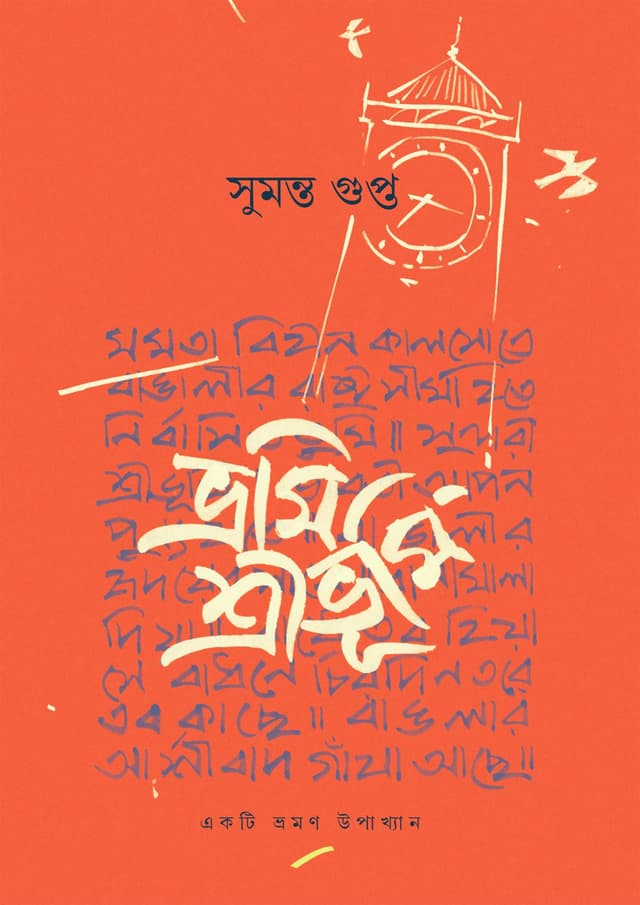 সুমন্ত গুপ্ত
মমতা বিহীন কালস্রোতে
বাঙালীর রাষ্ট্র সীমা হতে
নির্বাসিতা তুমি॥ সুন্দরী
আপন
ভ্রমি
শ্রীভূমি
দিয়া হিয়া
সে বাঁধনে চিরদিন তরে
তব কাছে॥ বাঙলার
আশীর্বাদ গাঁথা আছে॥
একটি ভ্রমণ উপাখ্যান